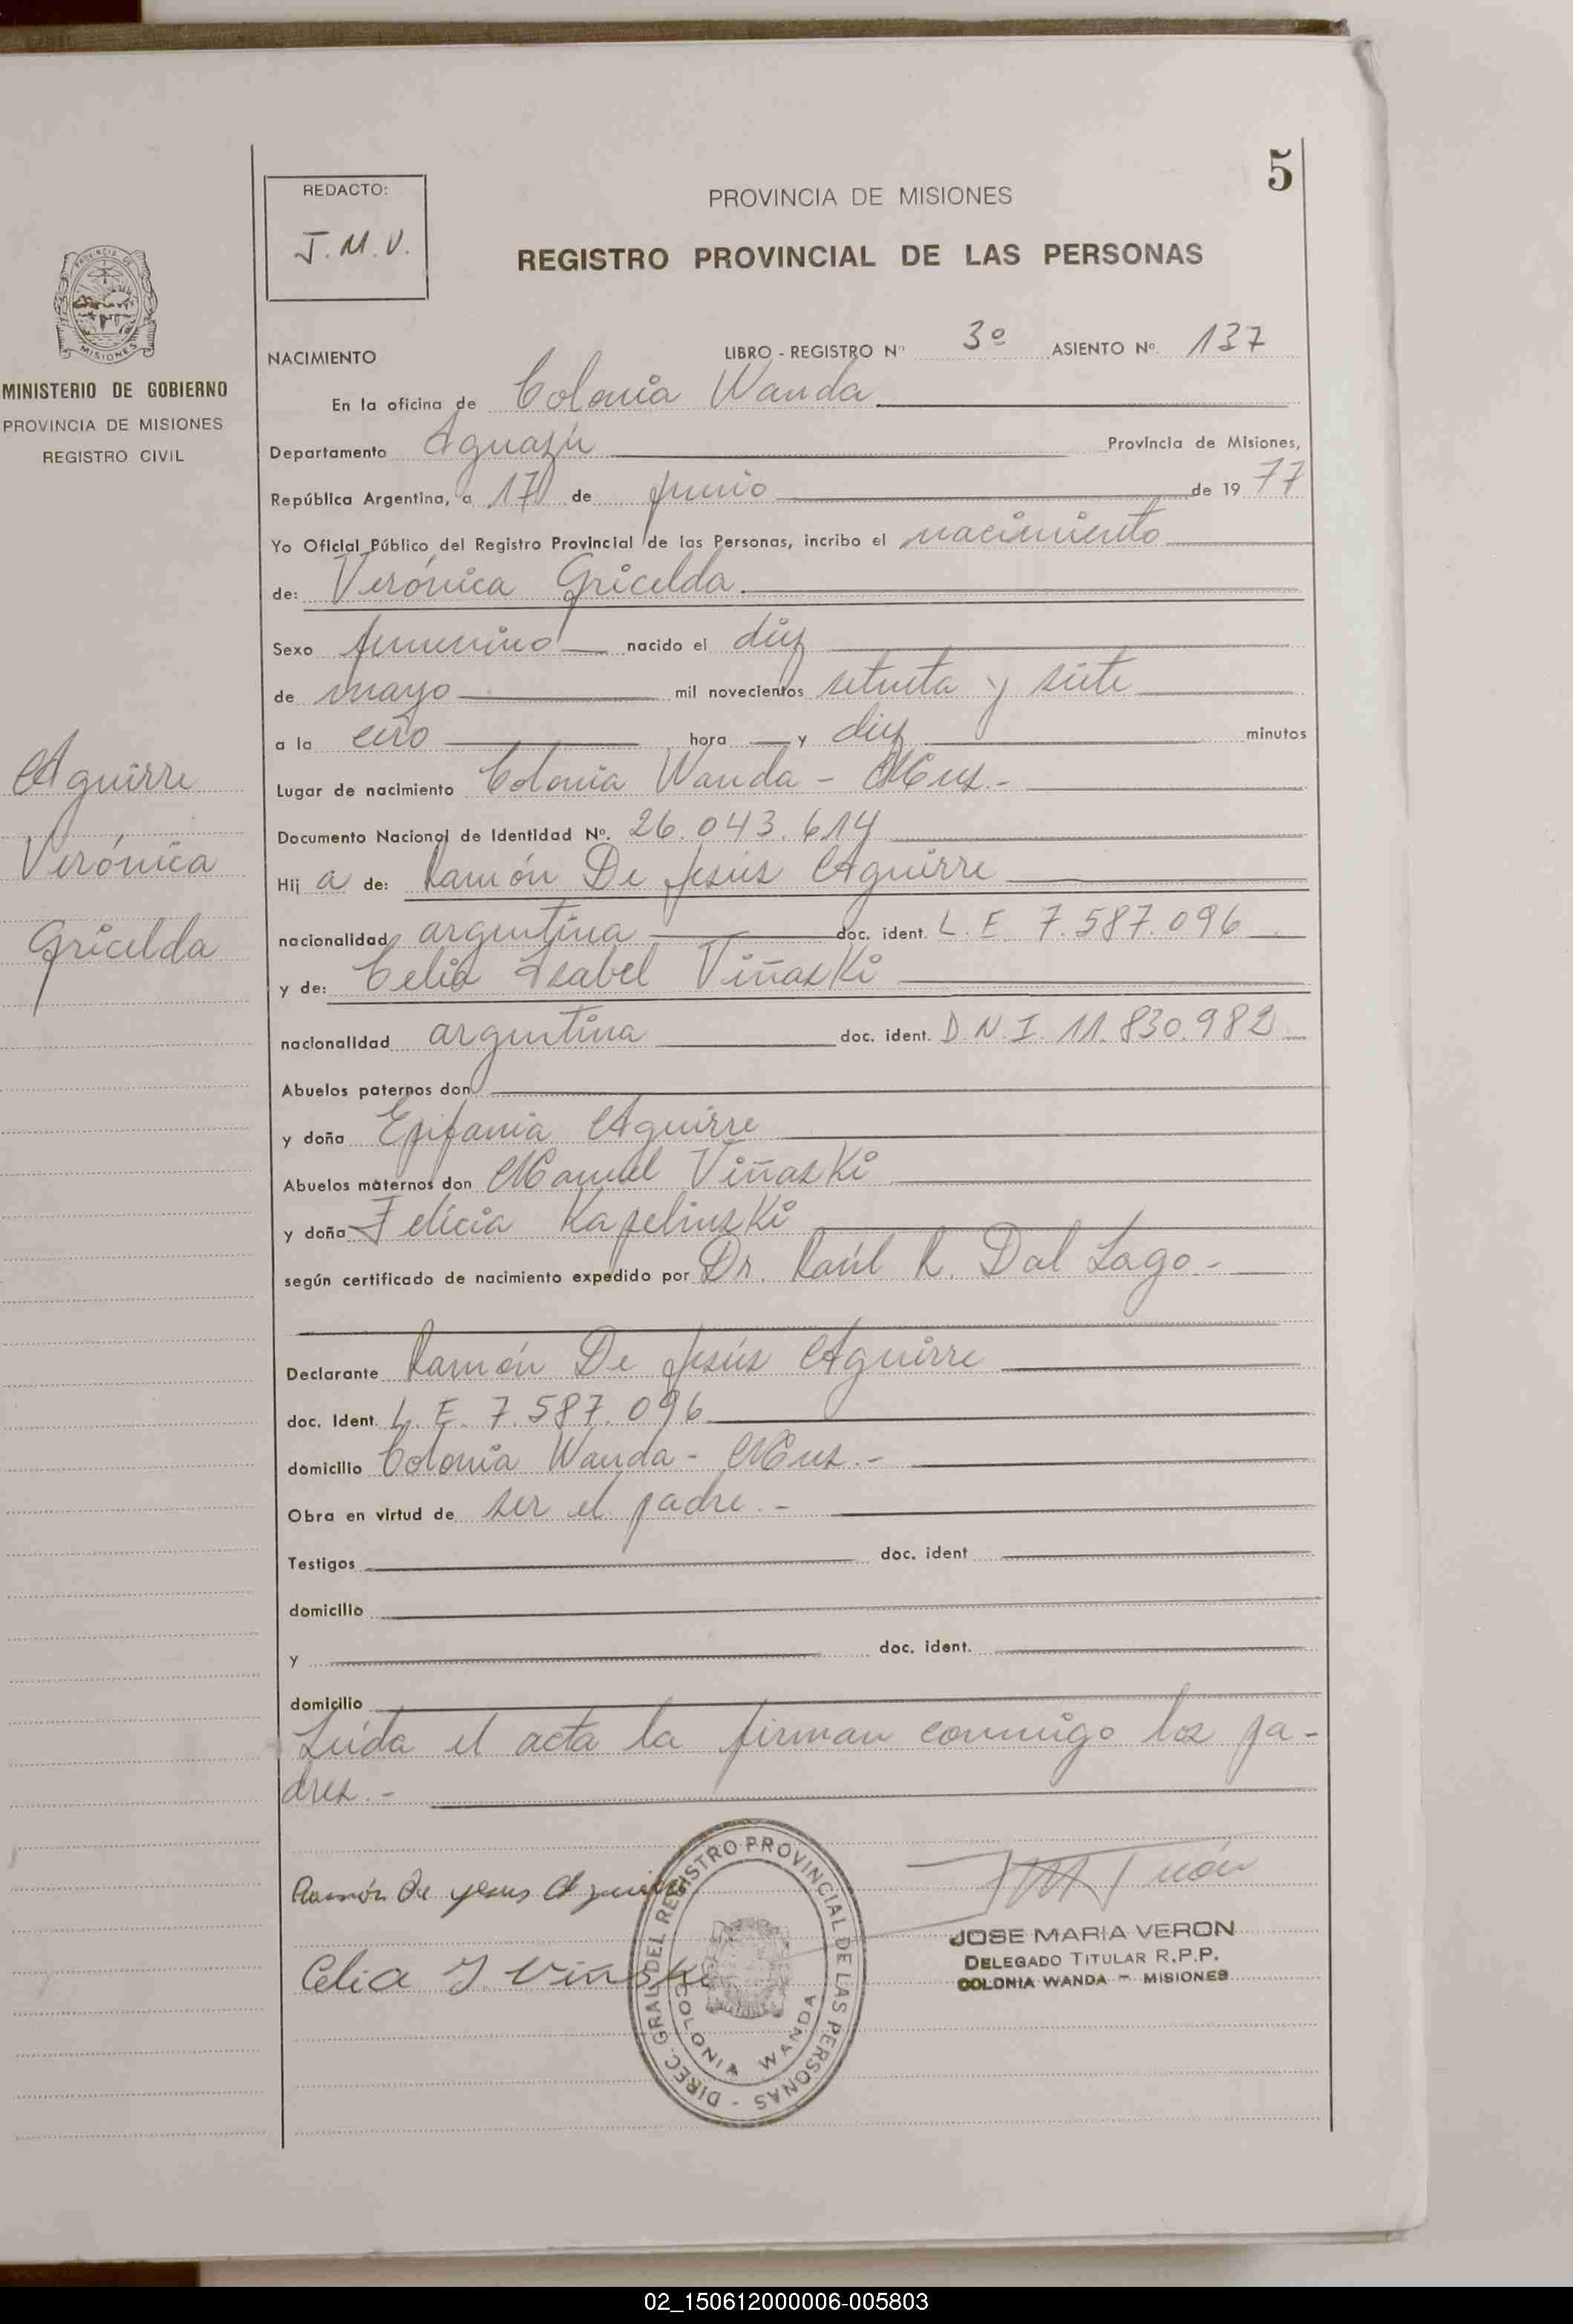 5
REDACTO:
J. M. V.
PROVINCIA DE MISIONES
REGISTRO PROVINCIAL DE LAS PERSONAS
PROVINCIA DE MISIONES
MINISTERIO DE GOBIERNO
PROVINCIA DE MISIONES
REGISTRO CIVIL
Aguirre
Verónica
Gricelda
NACIMIENTO LIBRO - REGISTRO Nº 3º ASIENTO Nº 137
En la oficina de Colonia Wanda
Departamento Iguazú Provincia de Misiones,
República Argentina, a 17 de junio de 19 77
Yo Oficial Público del Registro Provincial de las Personas, incribo el nacimiento
de: Verónica Gricelda
Sexo femenino nacido el diez
de mayo mil novecientos setenta y siete
a la cero hora y diez minutos
Lugar de nacimiento Colonia Wanda - Mnes.-
Documento Nacional de Identidad Nº. 26.043.614
Hij a de: Ramón De Jesús Aguirre
nacionalidad argentina doc. ident. L. E. 7.587.096
y de: Celia Isabel Viñaski
nacionalidad argentina doc. ident. D.N.I. 11.830.982
Abuelos paternos don
y doña Epifania Aguirre
Abuelos maternos don Manuel Viñaski
y doña Felicia Kapelinski
según certificado de nacimiento expedido por Dr. Raúl R. Dal Lago -
Declarante Ramón De Jesús Aguirre
doc. Ident. L. E. 7.587.096
domicilio Colonia Wanda - Mnes.-
Obra en virtud de ser el padre.-
Testigos doc. ident
domicilio
y doc. ident.
domicilio
Leída el acta la firman conmigo los pa-
dres.-
Ramón De Jesus Aguirre
Celia I. Viñaski
DIREC. GRAL. DEL REGISTRO PROVINCIAL DE LAS PERSONAS -
COLONIA WANDA
JOSE MARIA VERON
DELEGADO TITULAR R.P.P.
COLONIA WANDA - MISIONES
02_150612000006-005803